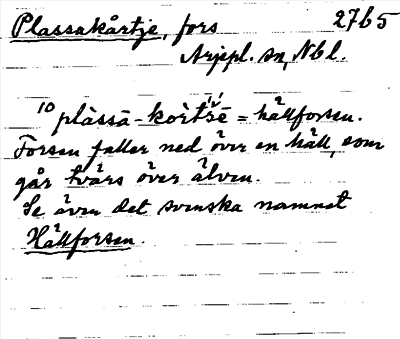 Plassakårtje, fors 2765
Arjepl. sn, Nbl.
10 plàssā-kòrt́śē = hällforsen.
Forsen faller ned över en häll, som
går tvärs över älven.
Se även det svenska namnet
Hällforsen.